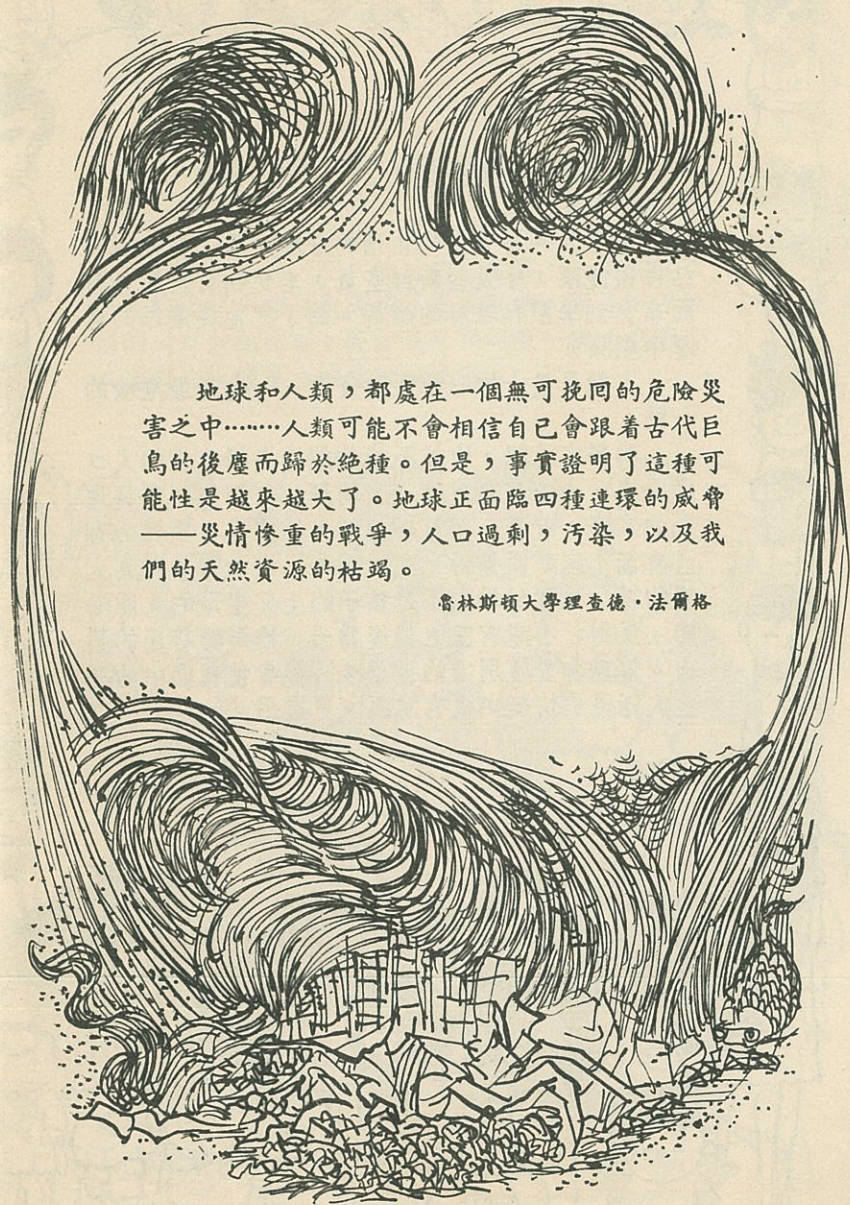 地球和人類，都處在一個無可挽囘的危險災
害之中………人類可能不會相信自己會跟着古代巨
鳥的後塵而歸於絕種。但是，事實證明了這種可
能性是越來越大了。地球正面臨四種連環的威脅
——災情慘重的戰爭，人口過剩，汚染，以及我
們的天然資源的枯竭。
魯林斯頓大學理查德·法爾格